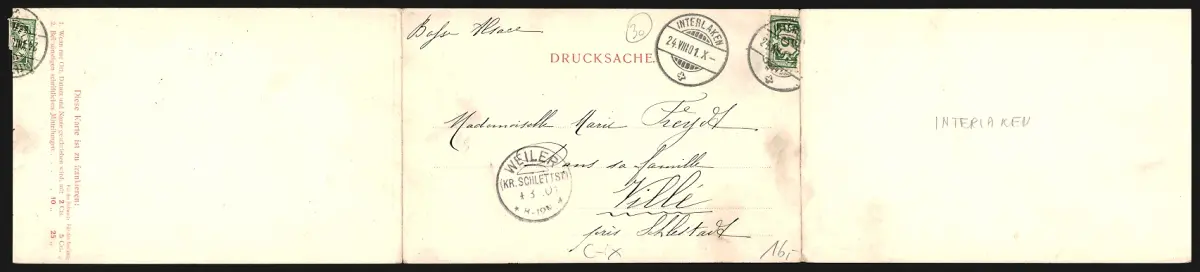 Diese Karte ist zu frankieren:
für die Schweiz für das Ausland
1. Wenn nur Ort, Datum und Name geschrieben wird, mit 2 Cts. 5 Cts.
2. Bei sonstigen schriftlichen Mitteilungen . . . . 10 „ 25 „
Alsace
30
INTERLAKEN
24.VIII.01.X-
DRUCKSACHE.
Mademoiselle Marie Freydt
dans sa famille
Villé
près Schlestadt
WEILER
(KR. SCHLETTST)
C-IX
16,-
INTERLAKEN